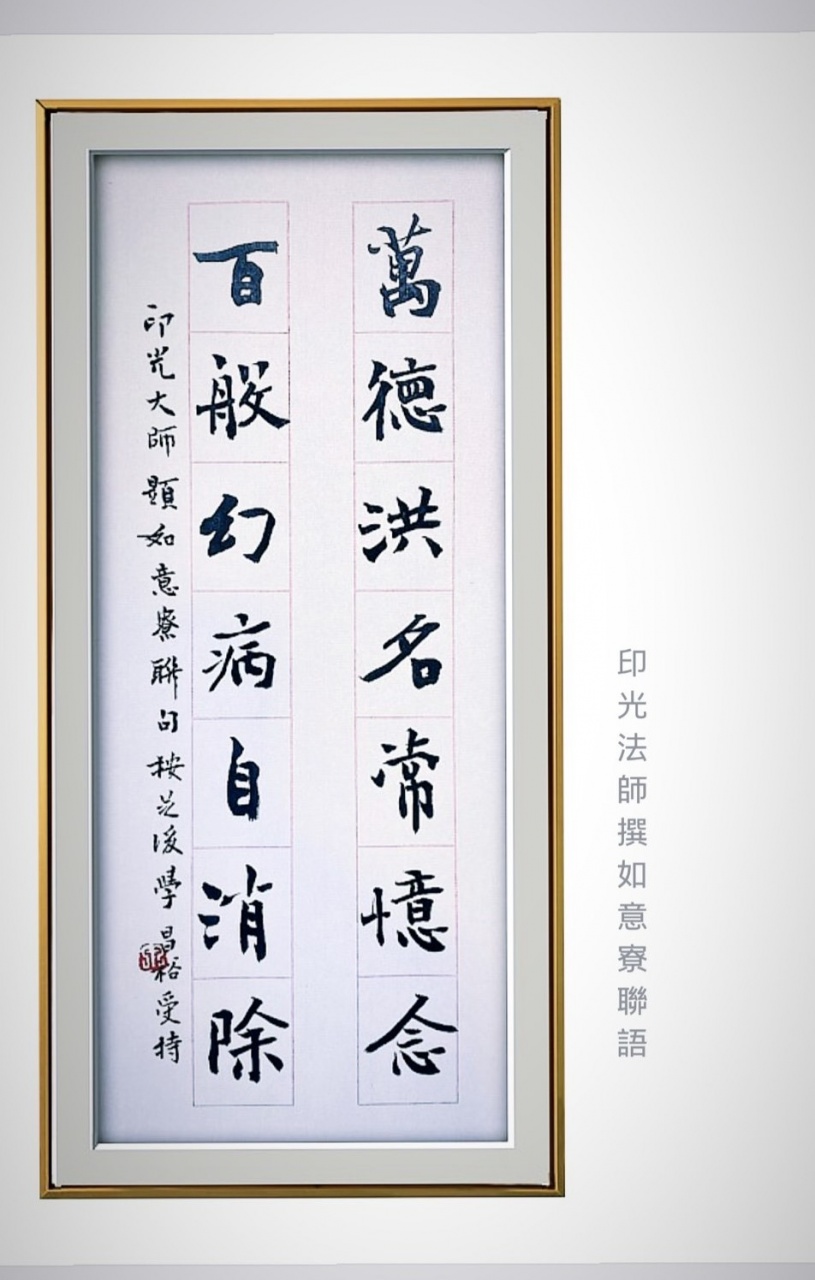 萬德洪名常憶念
百般幻病自消除
印光大師題如意寮聯句 後學昌裕受持
印光法師撰如意寮聯語